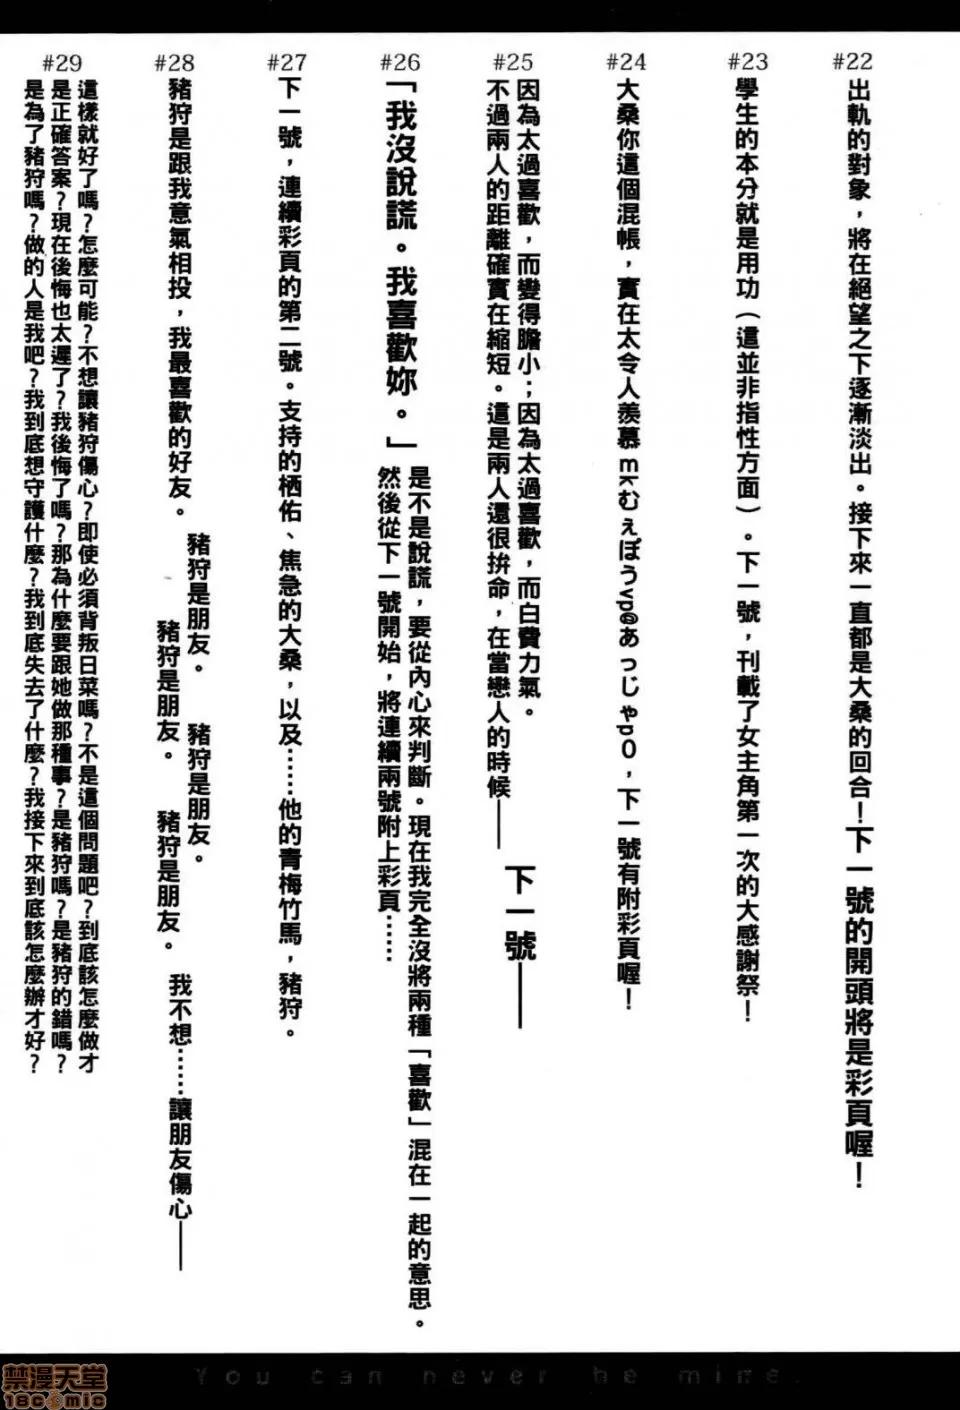 #22
出軌的對象，將在絕望之下逐漸淡出。接下來一直都是大桑的回合！下一號的開頭將是彩頁喔！
#23
學生的本分就是用功（這並非指性方面）。下一號，刊載了女主角第一次的大感謝祭！
#24
大桑你這個混帳，實在太令人羨慕mkむぇぽうvp@あっじゃp0，下一號有附彩頁喔！
#25
因為太過喜歡，而變得膽小；因為太過喜歡，而白費力氣。
不過兩人的距離確實在縮短。這是兩人還很拚命，在當戀人的時候——
下一號——
#26
「我沒說謊。我喜歡妳。」
是不是說謊，要從內心來判斷。現在我完全沒將兩種「喜歡」混在一起的意思。
然後從下一號開始，將連續兩號附上彩頁……
#27
下一號，連續彩頁的第二號。支持的栖佑、焦急的大桑，以及……他的青梅竹馬，豬狩。
#28
豬狩是跟我意氣相投，我最喜歡的好友。
豬狩是朋友。
豬狩是朋友。
豬狩是朋友。
豬狩是朋友。
我不想……讓朋友傷心——
#29
這樣就好了嗎？怎麼可能？不想讓豬狩傷心？即使必須背叛日菜嗎？不是這個問題吧？到底該怎麼做才
是正確答案？現在後悔也太遲了？我後悔了嗎？那為什麼要跟她做那種事？是豬狩嗎？是豬狩的錯嗎？
是為了豬狩嗎？做的人是我吧？我到底想守護什麼？我到底失去了什麼？我接下來到底該怎麼辦才好？
You can never be mine.
禁漫天堂
18comic